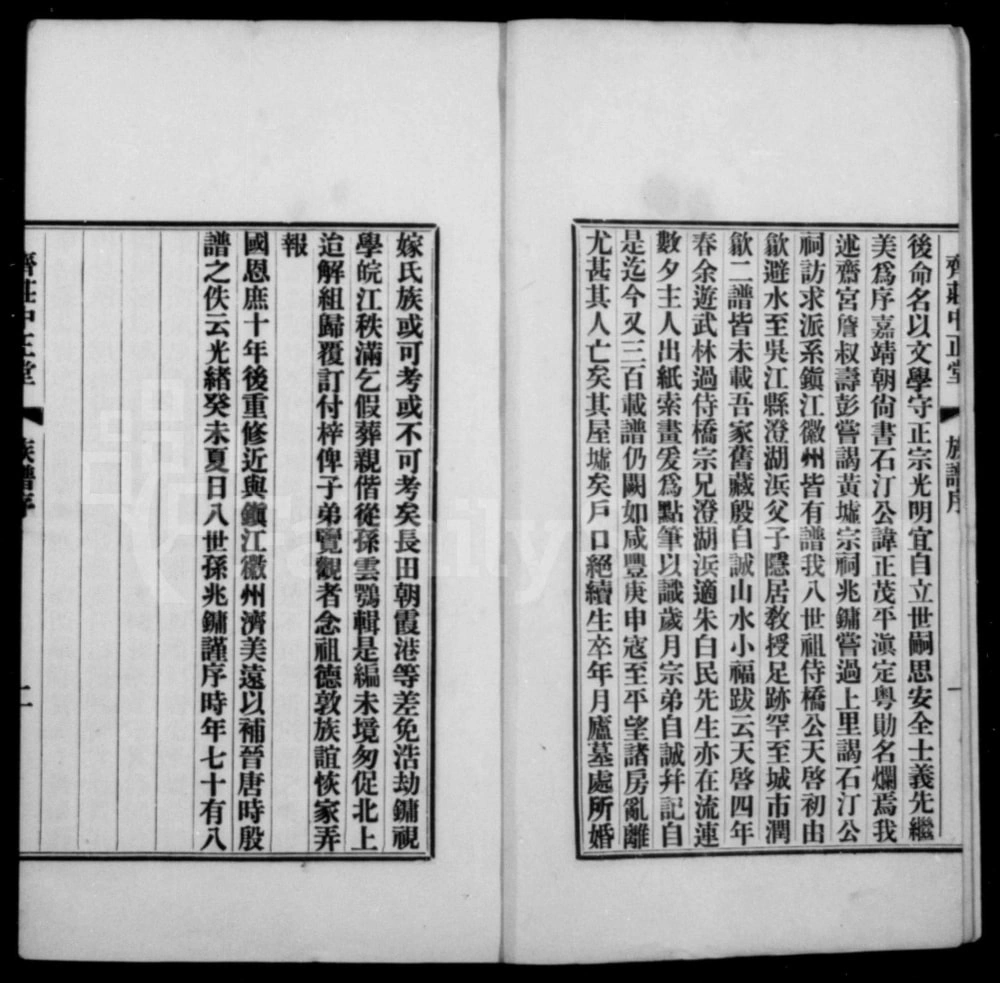 齊莊中正堂 族譜序 一
後命名以文學守正宗光明宜自立世嗣思安全士義先繼
美爲序嘉靖朝尙書石汀公諱正茂平滇定粤勛名爛焉我
述齋宮詹叔壽彭嘗謁黃墟宗祠兆鏞嘗過上里謁石汀公
祠訪求派系鎭江徽州皆有譜我八世祖侍橋公天啓初由
歙避水至吳江縣澄湖浜父子隱居敎授足跡罕至城市潤
歙二譜皆未載吾家舊藏殷自誠山水小福跋云天啓四年
春余遊武林過侍橋宗兄澄湖浜適朱白民先生亦在流連
數夕主人出紙索畫爰爲點筆以識歲月宗弟自誠幷記自
是迄今又三百載譜仍闕如咸豐庚申寇至平望諸房亂離
尤甚其人亡矣其屋墟矣戶口絕續生卒年月廬墓處所婚
嫁氏族或可考或不可考矣長田朝霞港等差免浩劫鏞視
學皖江秩滿乞假葬親偕從孫雲鶚輯是編未境匆促北上
迨解組歸覆訂付梓俾子弟覽觀者念祖德敦族誼恢家弄
報
國恩庶十年後重修近與鎭江徽州濟美遠以補晉唐時殷
譜之佚云光緒癸未夏日八世孫兆鏞謹序時年七十有八
齊莊中正堂 族譜序 二